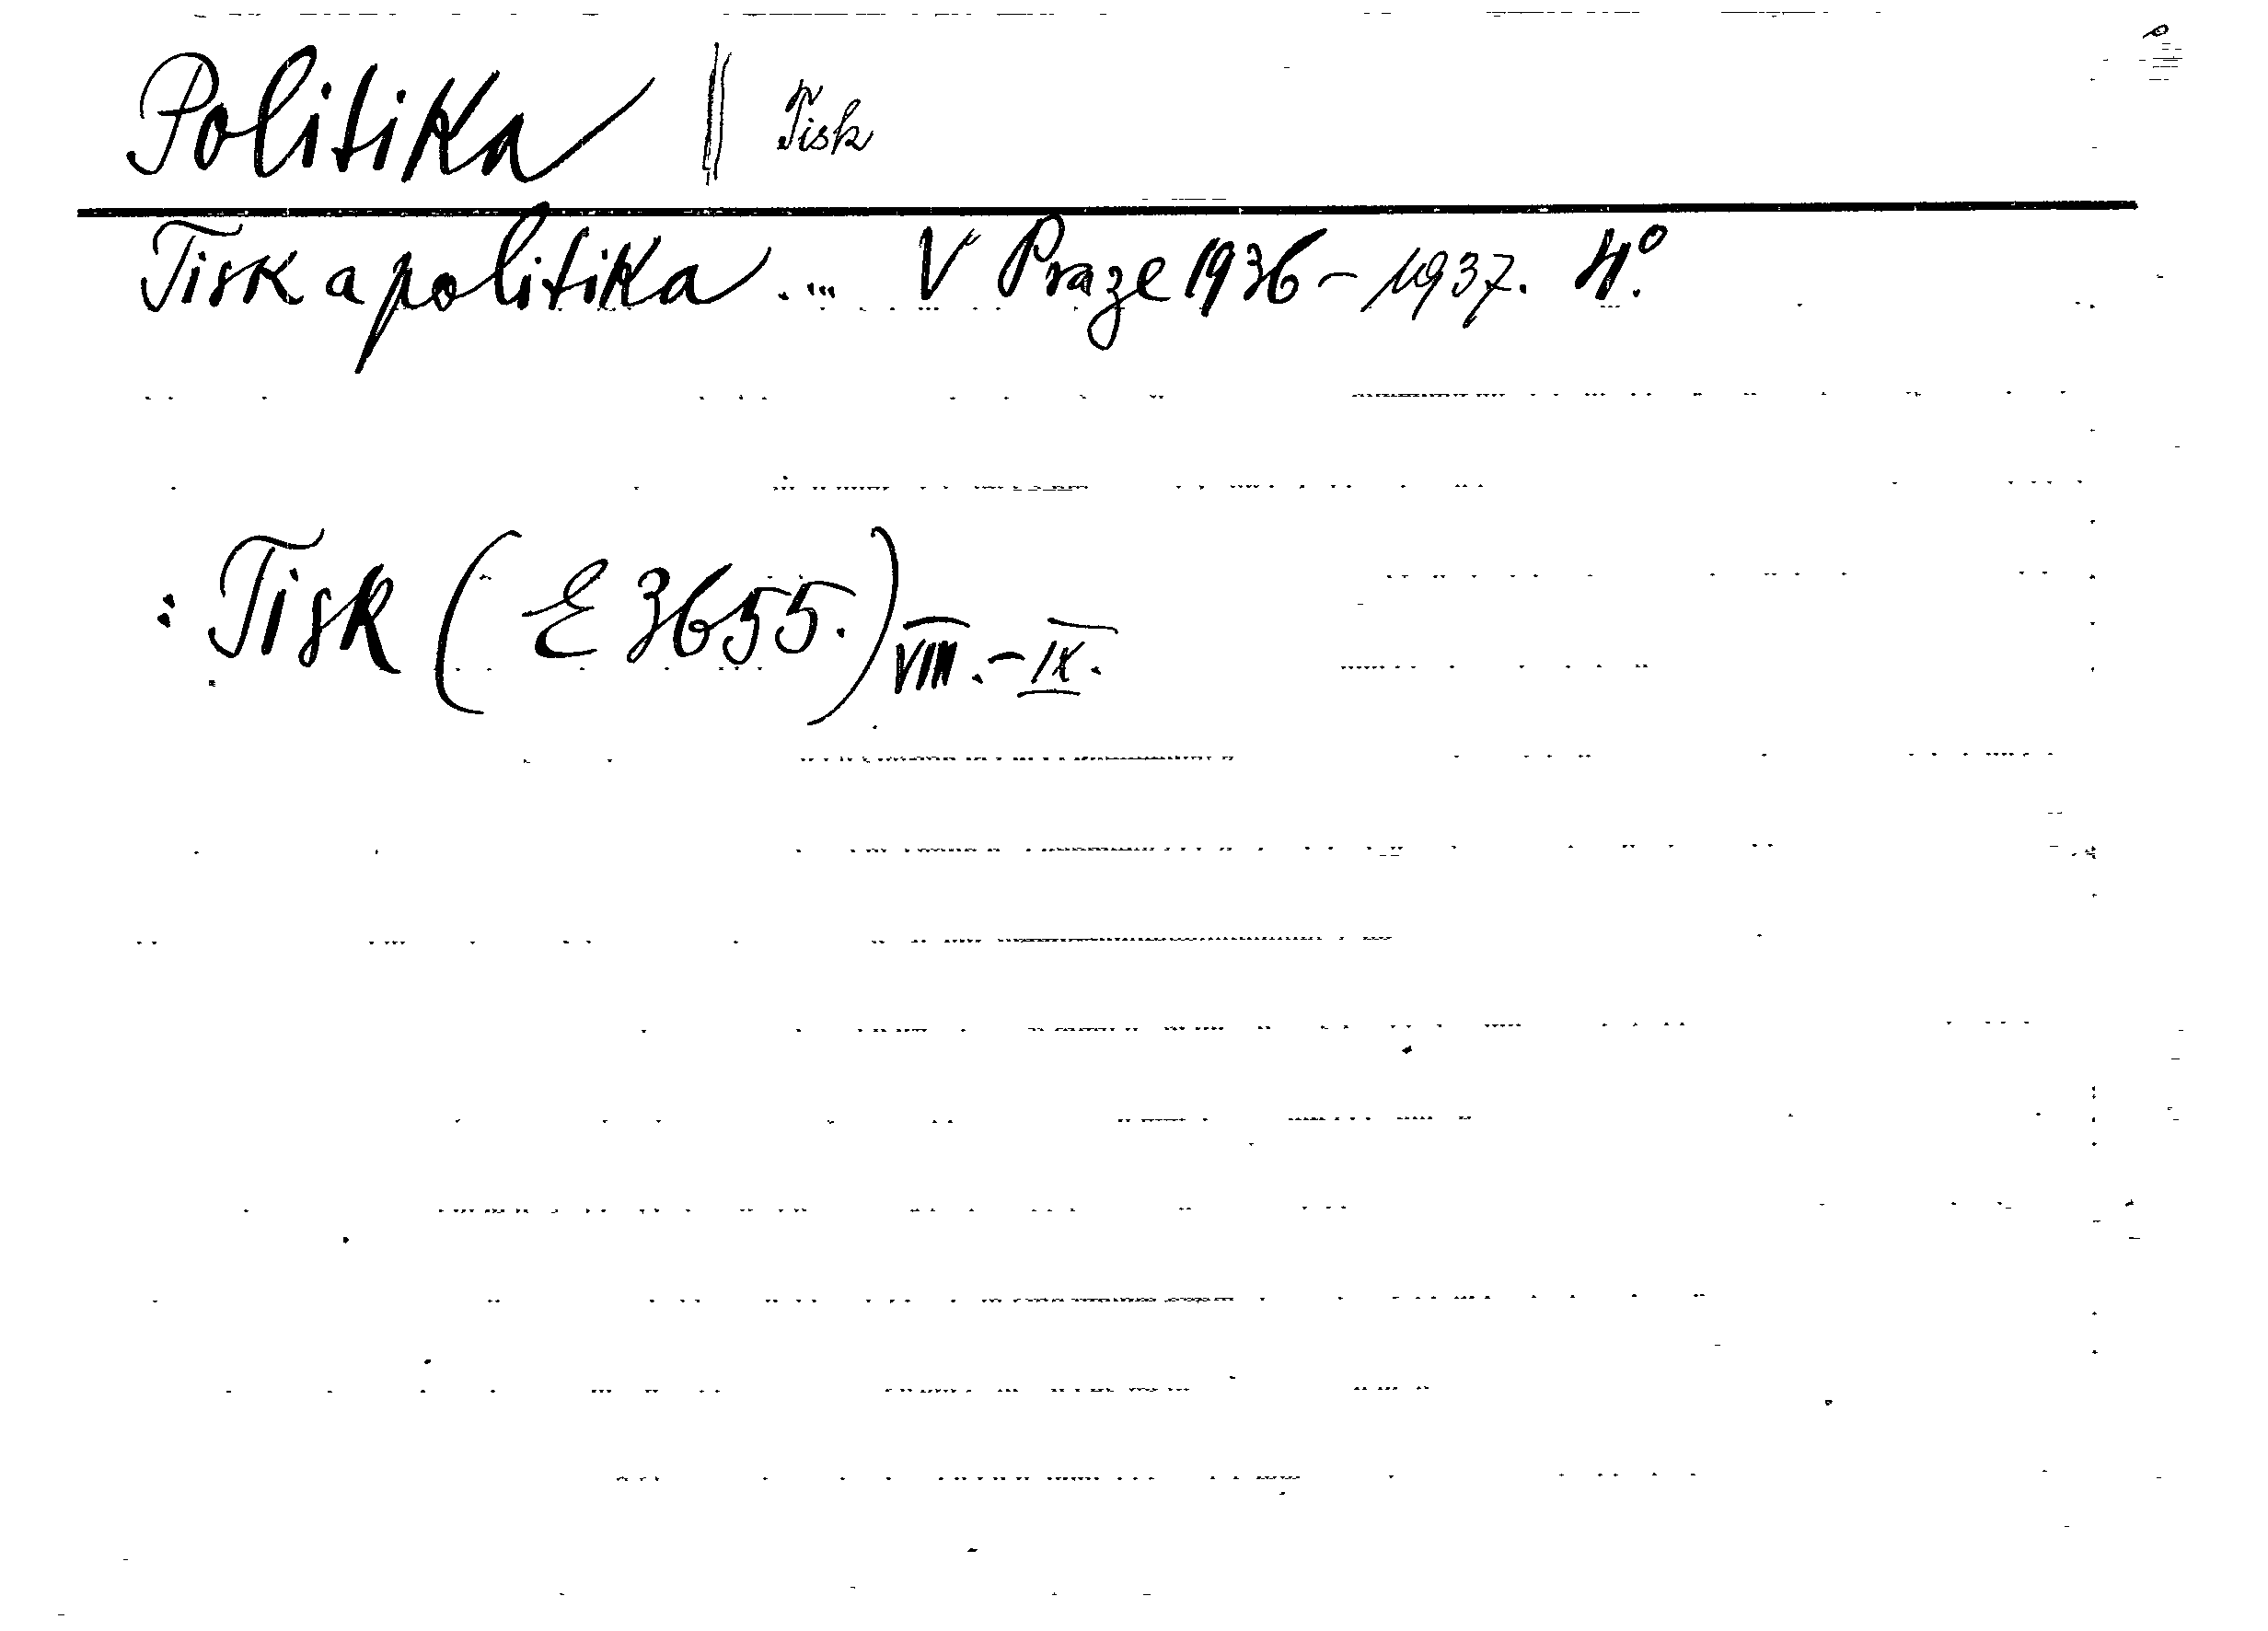 Politika || Tisk
Tisk a politika .... V Praze 1936 - 1937. 4°.
: Tisk (E 3655.) VIII. - IX.